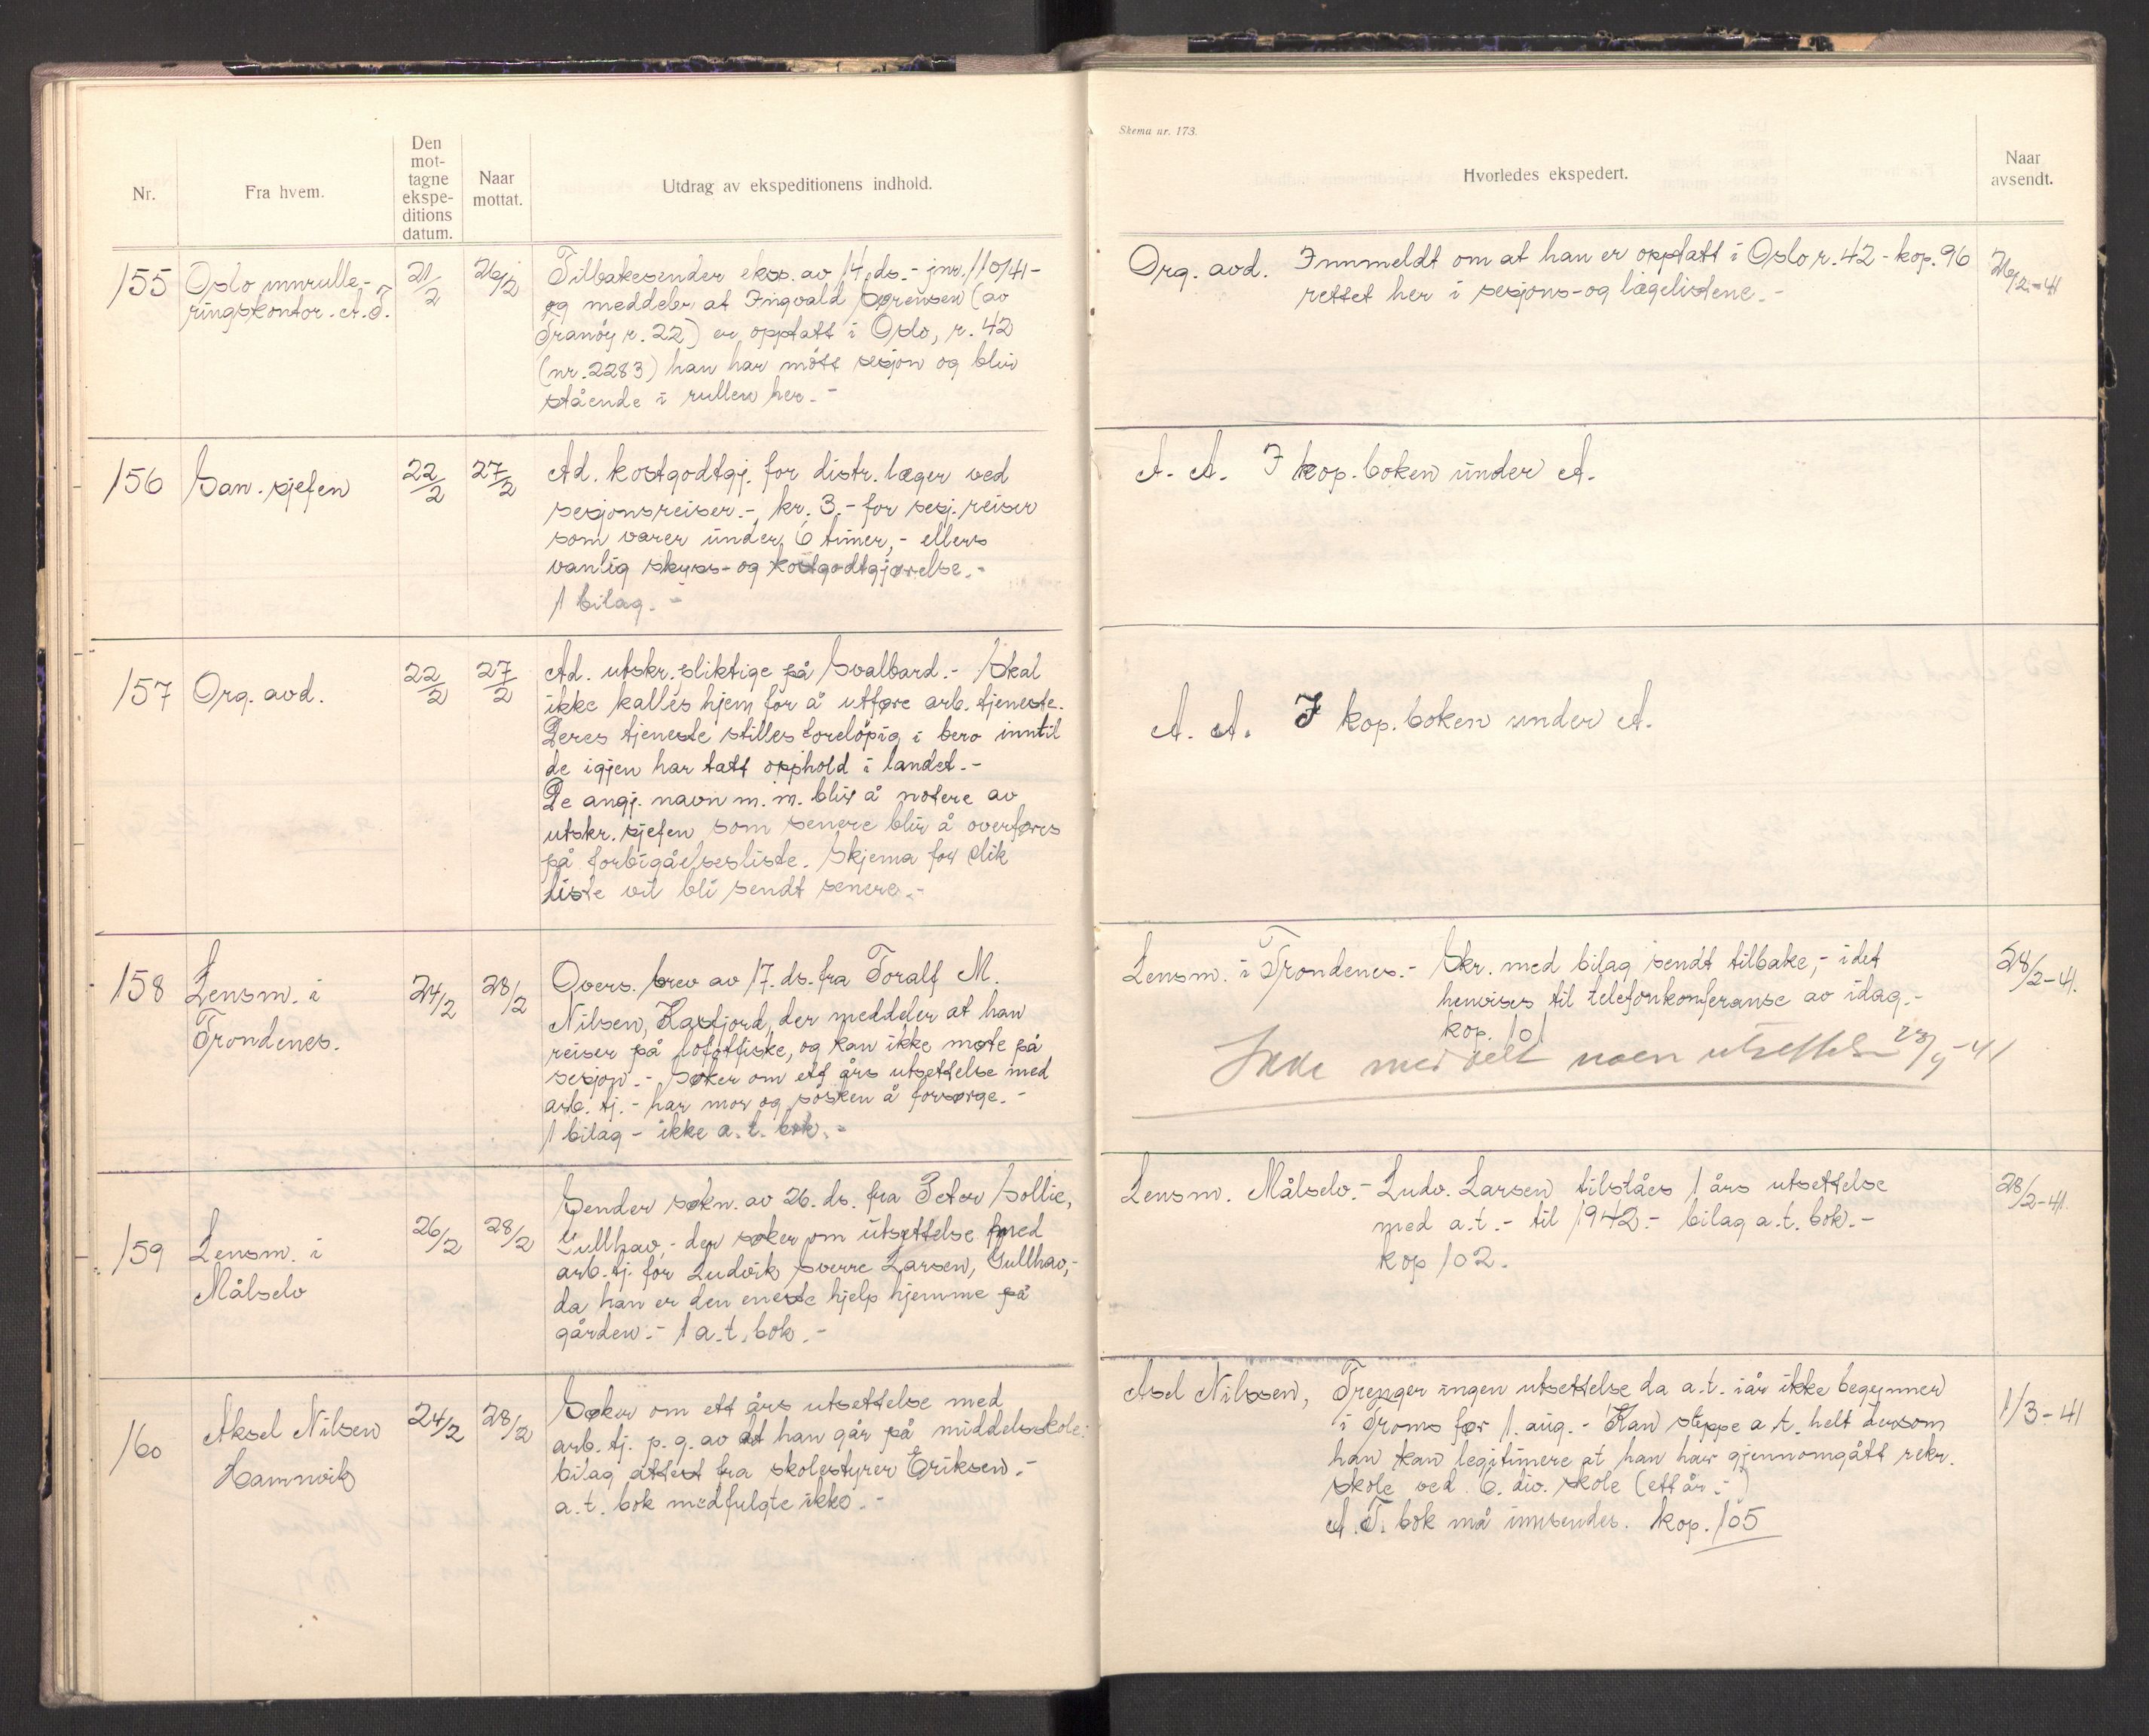 Nr.
Fra hvem.
Den
mot-
tagne
ekspe-
ditions
datum.
Naar
mottat.
Utdrag av ekspeditionens indhold.
155
Oslo innrulle-
ringskontor. A.T.
21/2
26/2
Tilbakesender eksp. av 14. ds. - jnr. 110/41 -
og meddeler at Ingvald Sørensen (av
Tranöy r. 22) er opptatt i Oslo, r. 42
(nr. 2283) han har mött sesjon og blir
stående i rullen her. -
156
San. sjefen
22/2
27/2
Ad. kostgodtgj. for distr. læger ved
sesjonsreiser. - kr. 3. - for sesj. reiser
som varer under 6 timer, - ellers
vanlig skyss- og kostgodtgjørelse. -
1 bilag. -
157
Org. avd.
22/2
27/2
Ad. utskr. pliktige på Svalbard. - Skal
ikke kalles hjem for å utføre arb. tjeneste.
Deres tjeneste stilles forelöpig i bero inntil
de igjen har tatt opphold i landet. -
De angj. navn m. m. blir å notere av
utskr. sjefen som senere blir å overføres
på forbigåelsesliste. Skjema for slik
liste vil bli sendt senere. -
158
Lensm. i
Trondenes.
24/2
28/2
Overs. brev av 17. ds. fra Toralf M.
Nilsen, Kasfjord, der meddeler at han
reiser på lofotfiske, og kan ikke møte på
sesjon. - Søker om ett års utsettelse med
arb. tj. - har mor og sösken å forsørge. -
1 bilag - ikke a. t. bok. -
159
Lensm. i
Målselv
26/2
28/2
Sender søkn. av 26. ds. fra Peter Sollie,
Gullhav, - der søker om utsettelse med
arb. tj. for Ludvik Sverre Larsen, Gullhav, -
da han er den eneste hjelp hjemme på
gården. - 1 a. t. bok. -
160
Aksel Nilsen
Hamnvik
24/2
28/2
Søker om ett års utsettelse med
arb. tj. p. g. av at han går på middelskole.
bilag attest fra skolestyrer Eriksen. -
a. t. bok medfulgte ikke. -
Skema nr. 173.
Hvorledes ekspedert.
Naar
avsendt.
Org. avd. Innmeldt om at han er opptatt i Oslo r. 42 - kop. 96
rettet her i sesjons- og lægelistene. -
26/2-41
A. A. I kop. boken under A.
A. A. I kop. boken under A.
Lensm. i Trondenes. - Skr. med bilag sendt tilbake, - idet
henvises til telefonkonferanse av idag. -
kop. 101
28/2-41.
Ikke meddelt noen utsettelse
Lensm. Målselv. - Ludv. Larsen tilståes 1 års utsettelse
med a. t. - til 1942. - bilag a. t. bok. -
kop 102.
28/2-41.
Axel Nilssen, Trenger ingen utsettelse da a. t. iår ikke begynner
i Troms før 1. aug. - Kan sleppe a. t. helt dersom
han kan legitimere at han har gjennomgått rekr.
skole ved 6. div. skole (ett år. -)
A. T. bok må innsendes. kop. 105
1/3-41